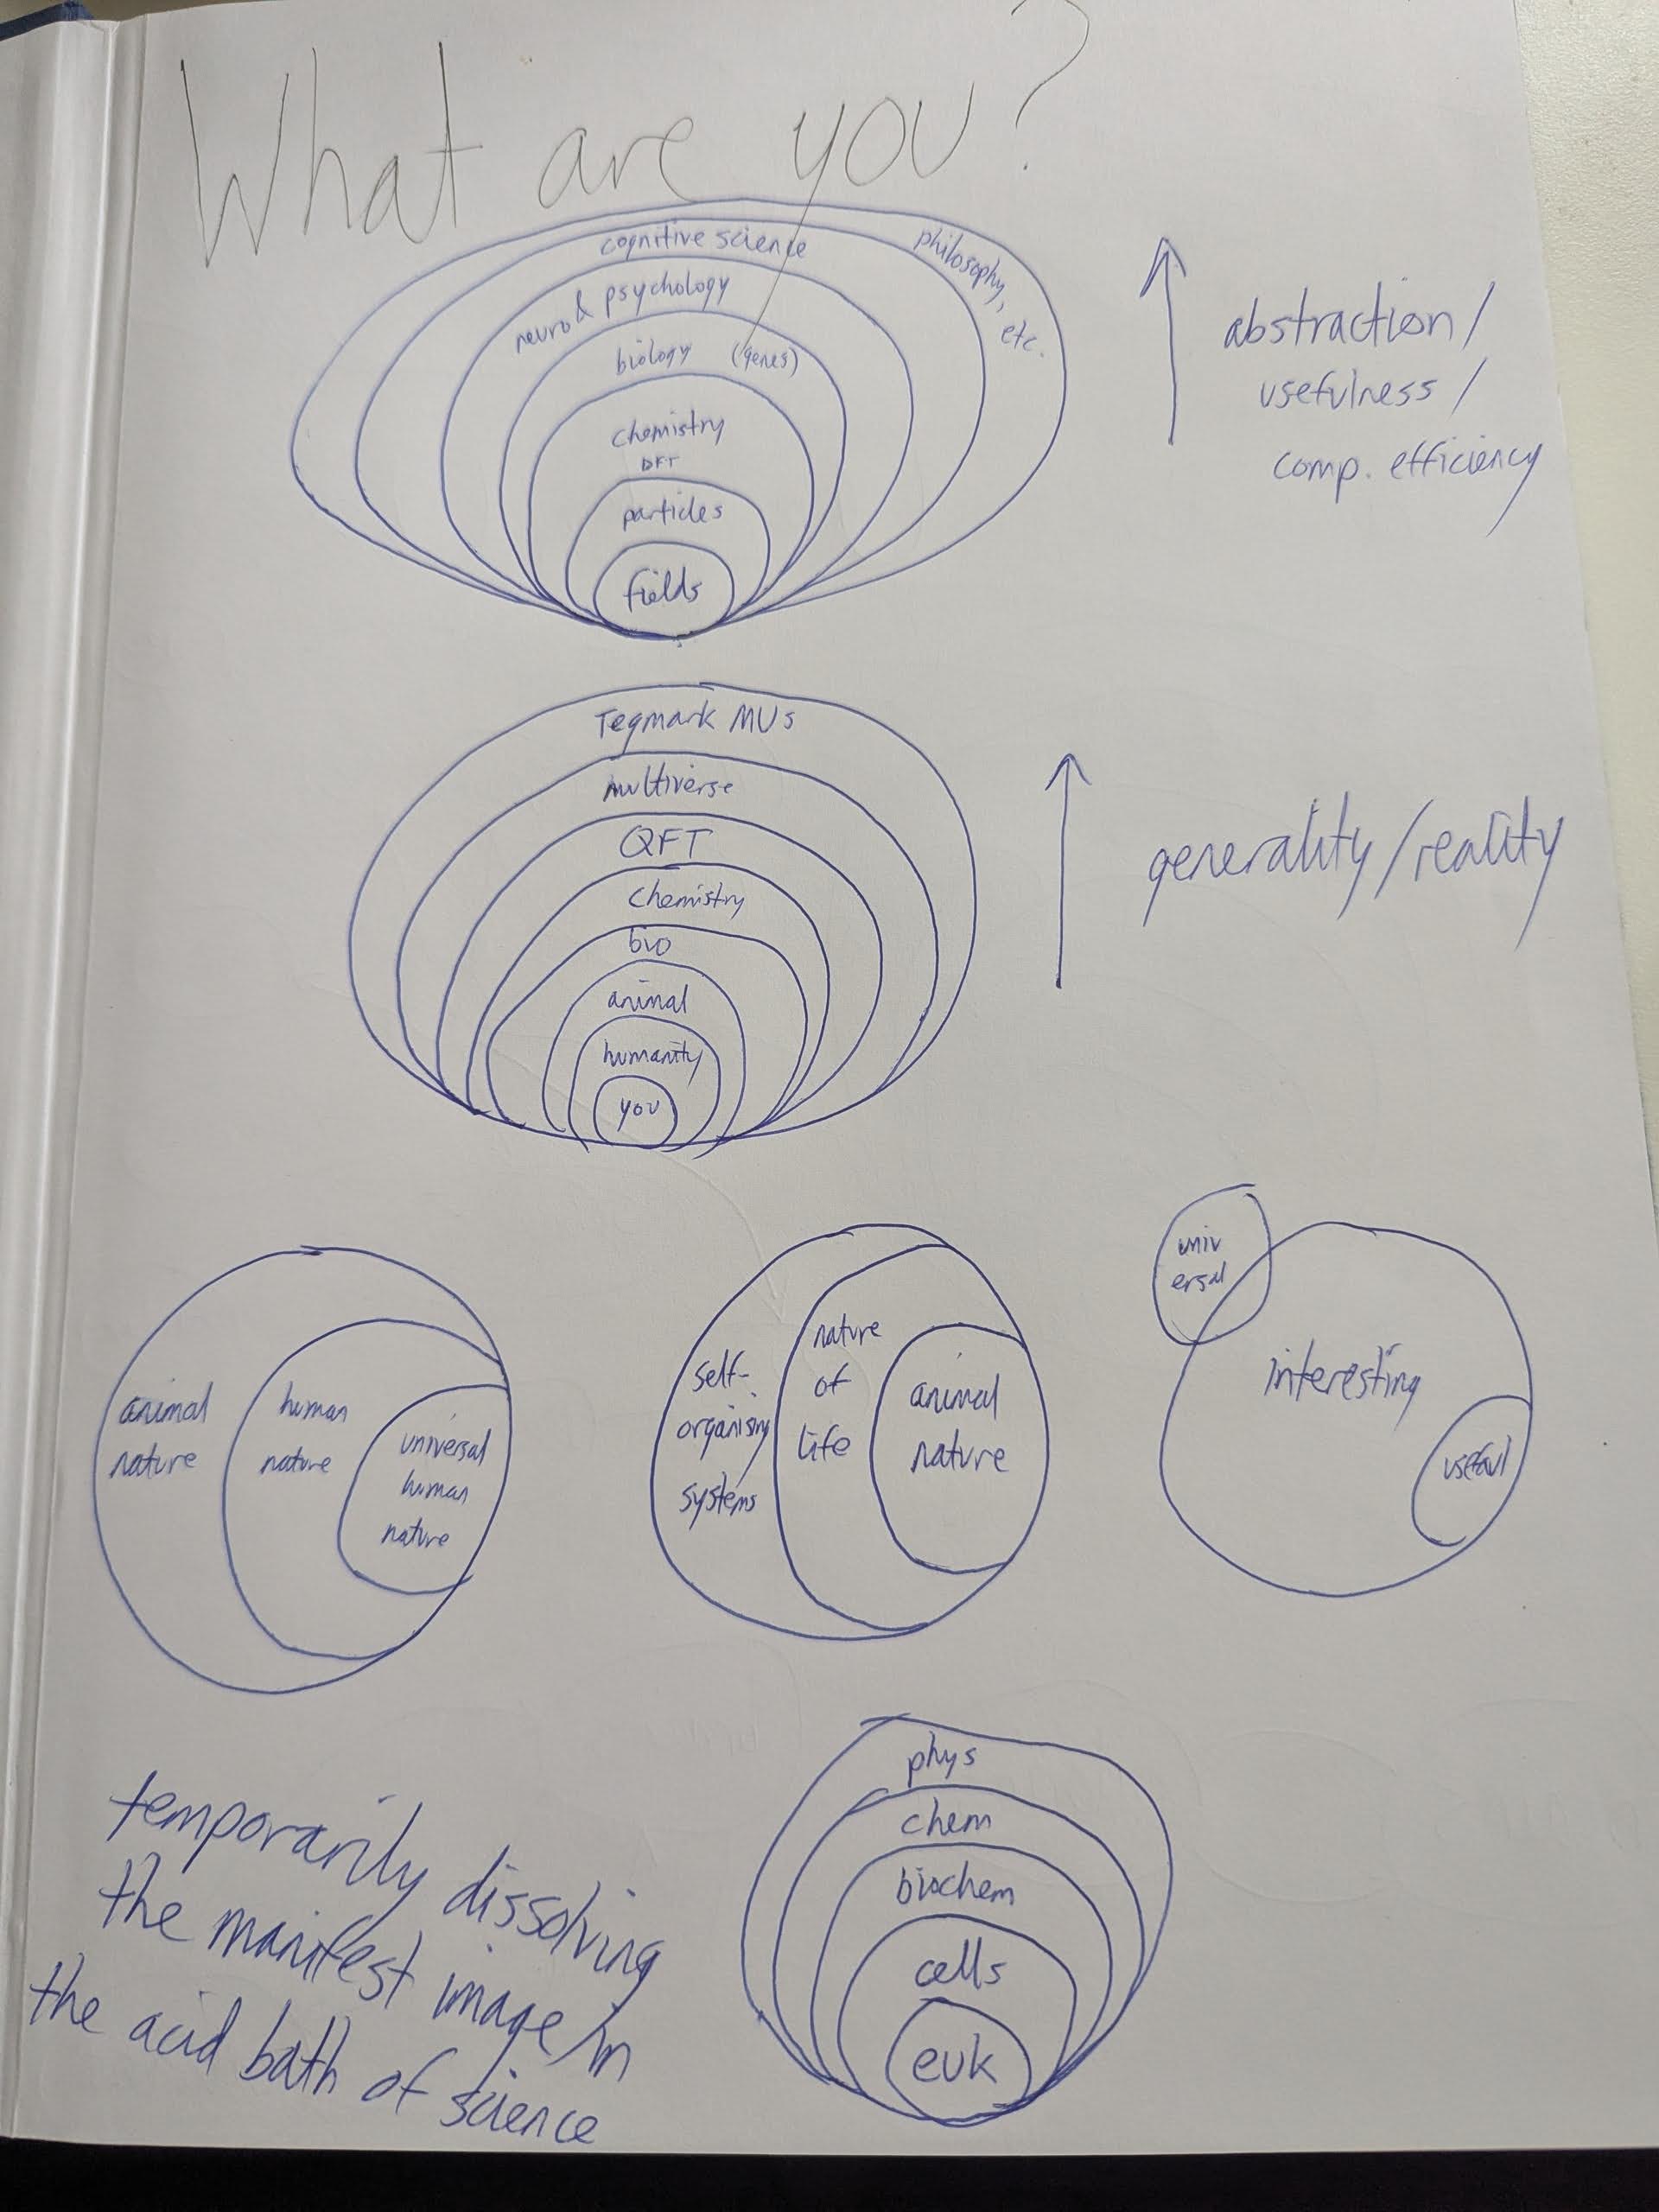 What are you?
cognitive science
philosophy, etc.
neuro & psychology
biology (genes)
chemistry
DFT
particles
fields
abstraction/
usefulness/
comp. efficiency
Tegmark MUs
multiverse
QFT
chemistry
bio
animal
humanity
you
generality/reality
animal
nature
human
nature
universal
human
nature
self-
organising
systems
nature
of
life
animal
nature
univ
ersal
interesting
useful
temporarily dissolving
the manifest image in
the acid bath of science
phys
chem
biochem
cells
euk